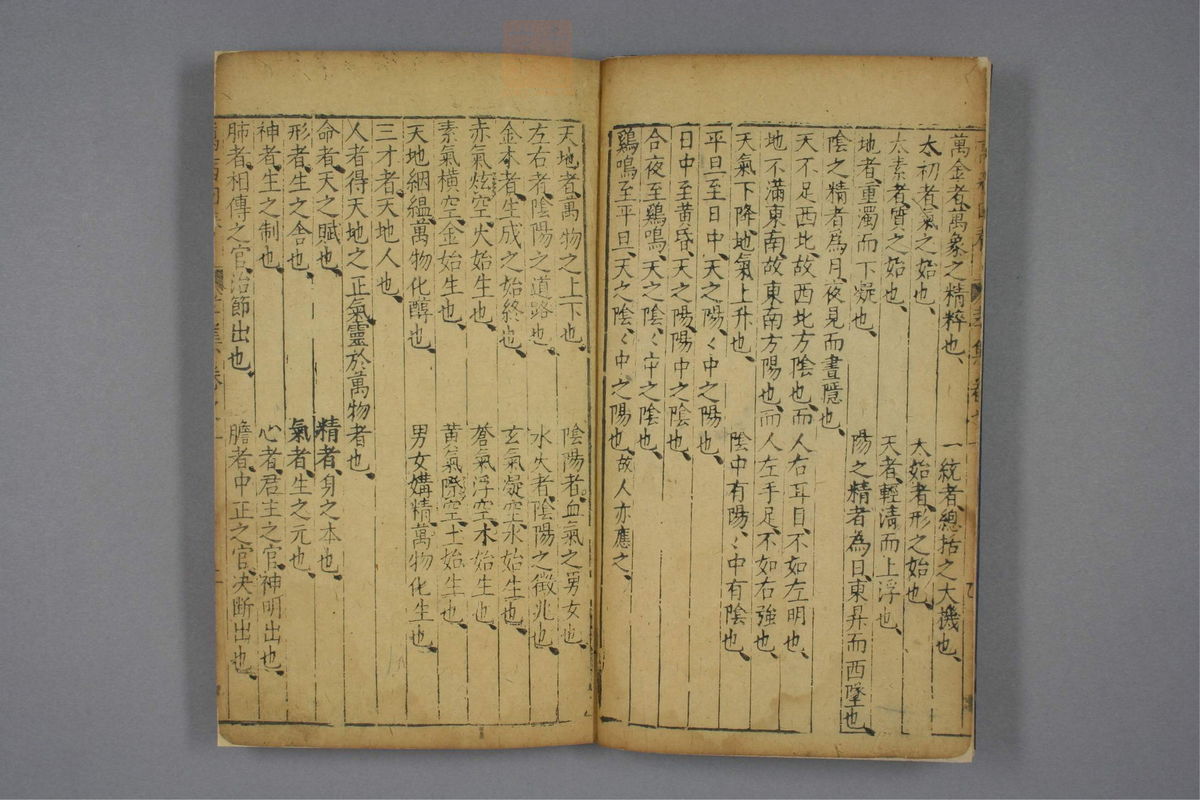 萬金者、萬象之精粹也、 一統者、總括之大機也、
太初者、氣之始也、 太始者、形之始也、
太素者、質之始也、 天者、輕清而上浮也、
地者、重濁而下凝也、 陽之精者為日、東昇而西墜也、
陰之精者為月、夜見而晝隱也、
天不足西北、故西北方陰也、而人右耳目、不如左明也、
地不滿東南、故東南方陽也、而人左手足、不如右強也、
天氣下降、地氣上升也、 陰中有陽、〻中有陰也、
平旦至日中、天之陽、〻中之陽也、
日中至黃昏、天之陽、陽中之陰也、
合夜至鷄鳴、天之陰、〻中之陰也、
鷄鳴至平旦、天之陰、〻中之陽也、故人亦應之、
天地者、萬物之上下也、 陰陽者、血氣之男女也、
左右者、陰陽之道路也、 水火者、陰陽之徵兆也、
金木者、生成之始終也、 玄氣凝空、水始生也、
赤氣炫空、火始生也、 蒼氣浮空、木始生也、
素氣橫空、金始生也、 黃氣際空、土始生也、
天地絪縕、萬物化醇也、 男女媾精、萬物化生也、
三才者、天地人也、
人者、得天地之正氣、靈於萬物者也、
命者、天之賦也、 精者、身之本也、
形者、生之舍也、 氣者、生之元也、
神者、生之制也、 心者、君主之官、神明出也、
肺者、相傳之官、治節出也、 膽者、中正之官、決斷出也、